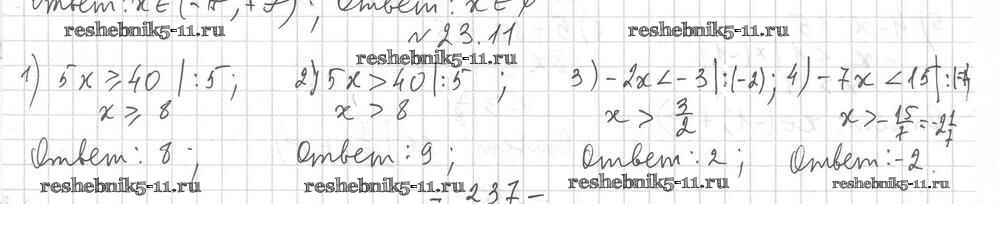 Ответ: x ∈ (-∞, +∞); Ответ: x ∈ ∅
reshebnik5-11.ru reshebnik5-11.ru
№ 23.11
reshebnik5-11.ru
1) 5x ≥ 40 |:5; 2) 5x > 40 |:5; 3) -2x < -3 |:(-2); 4) -7x < 15 |:(-7)
x ≥ 8 x > 8 x > 3/2 x > -15/7 = -2 1/7
Ответ: 8; Ответ: 9; Ответ: 2; Ответ: -2.
reshebnik5-11.ru reshebnik5-11.ru reshebnik5-11.ru reshebnik5-11.ru
- 237 -